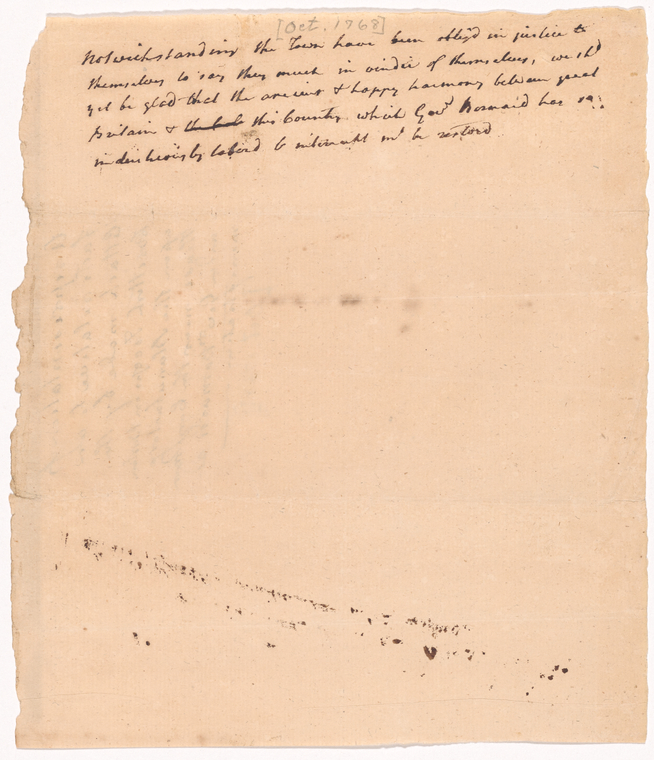 [Oct. 1768]
Notwithstanding the Town have been oblig'd in justice to
themselves to say thus much in vindicn of themselves, we shd
yet be glad that the ancient & happy harmony between great
Britain & this Country which Govr Bernard has so
industriously labord to interrupt mt be restord